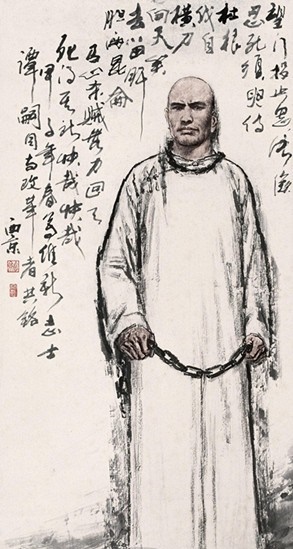 望门投止思张俭
忍死须臾待
杜根
我自
横刀
向天笑
去留肝
胆两昆仑
有心杀贼无力回天
死得其所快哉快哉
甲子年春为维新志士
谭嗣同与改革者共铭
西京